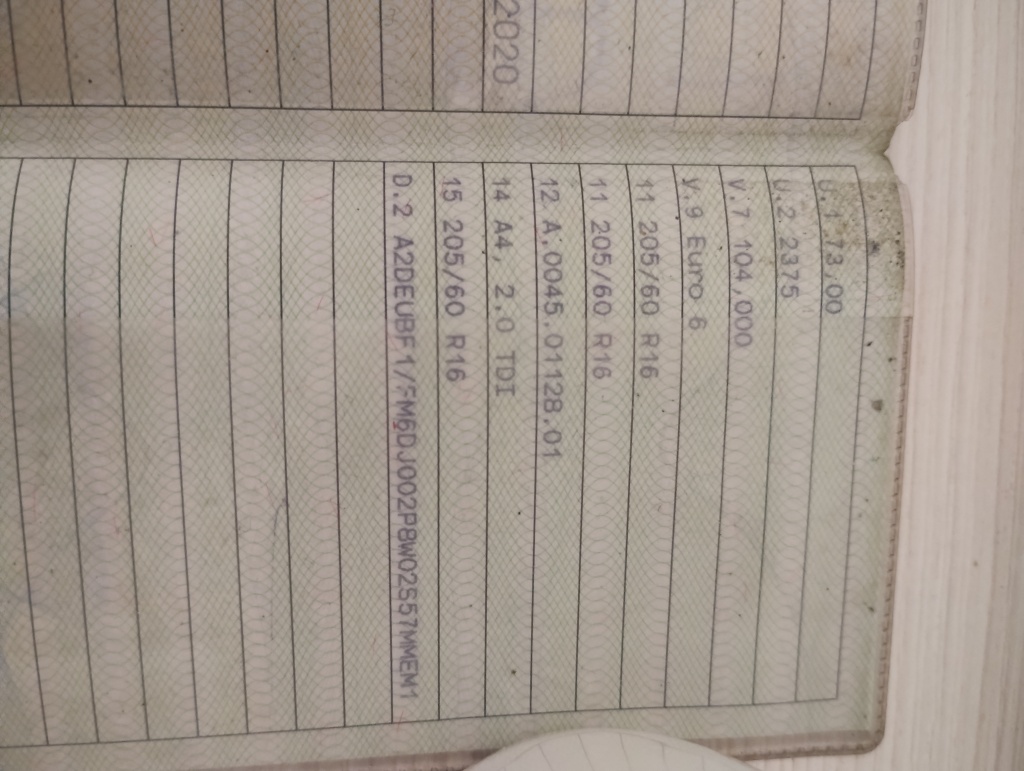 2020
U.1 73,00
U.2 2375
V.7 104,000
y.9 Euro 6
11 205/60 R16
11 205/60 R16
12 A.0045.01128.01
14 A4, 2.0 TDI
15 205/60 R16
D.2 A2DEUBF1/FM6DJ002P8W02S57MMEM1